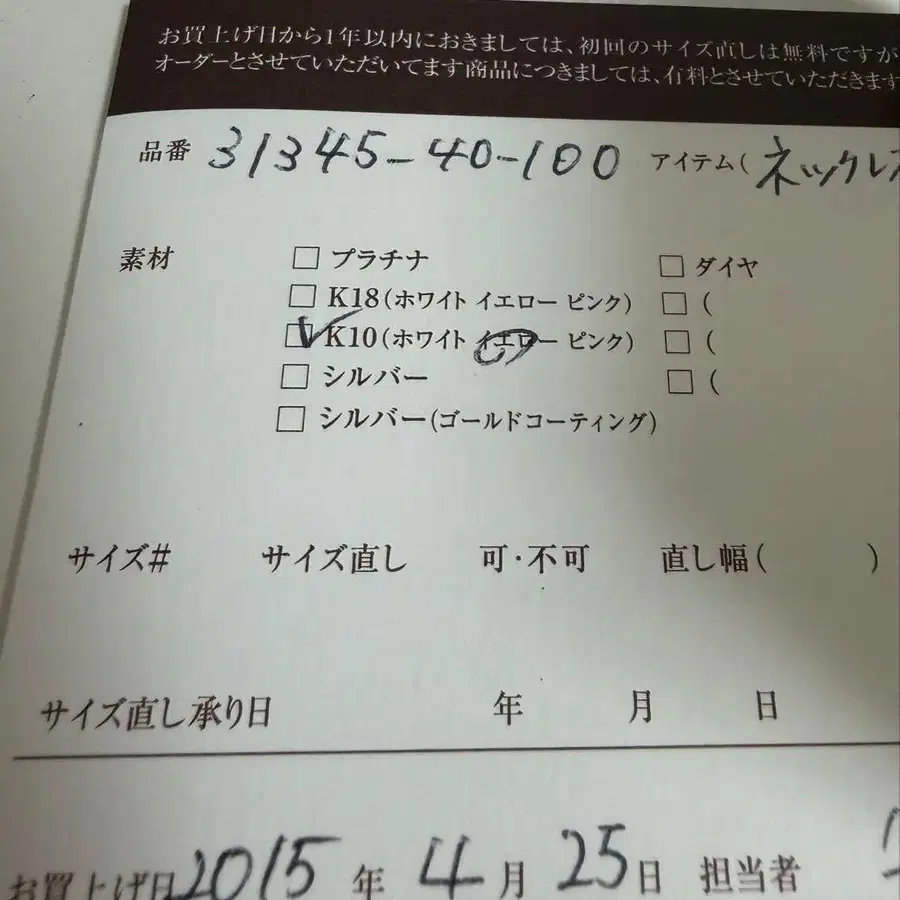 お買上げ日から1年以内におきましては、初回のサイズ直しは無料ですが
オーダーとさせていただいてます商品につきましては、有料とさせていただきます
品番 31345-40-100 アイテム( ネックレス
素材 □ プラチナ □ ダイヤ
□ K18(ホワイト イエロー ピンク) □ (
☑ K10(ホワイト イエロー ピンク) □ (
□ シルバー □ (
□ シルバー(ゴールドコーティング)
サイズ# サイズ直し 可・不可 直し幅( )
サイズ直し承り日 年 月 日
お買上げ日 2015 年 4 月 25 日 担当者